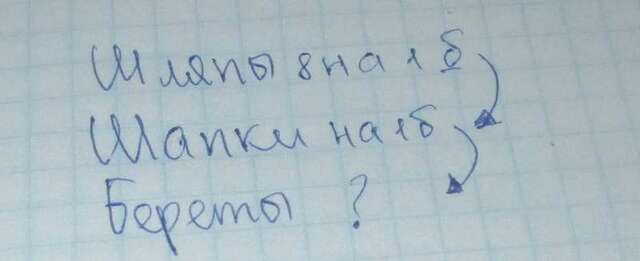 Шляпы 8 на 1 б
Шапки на 1 б
Береты ?